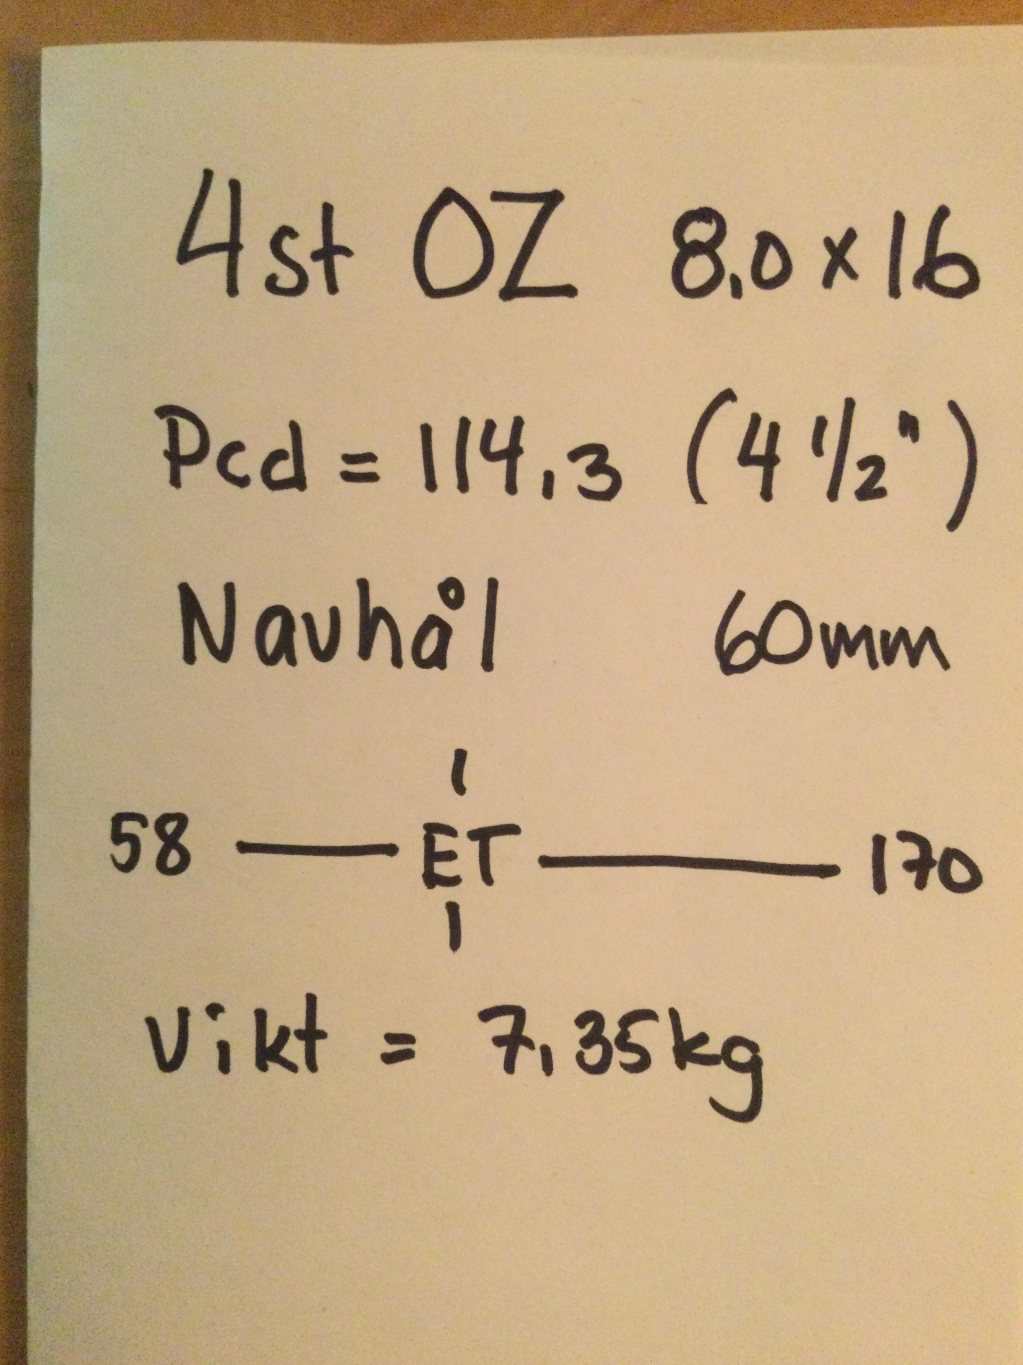 4st OZ 8,0 x 16
Pcd = 114,3 (4 1/2")
Navhål 60mm
58 — ET — 170
Vikt = 7,35kg